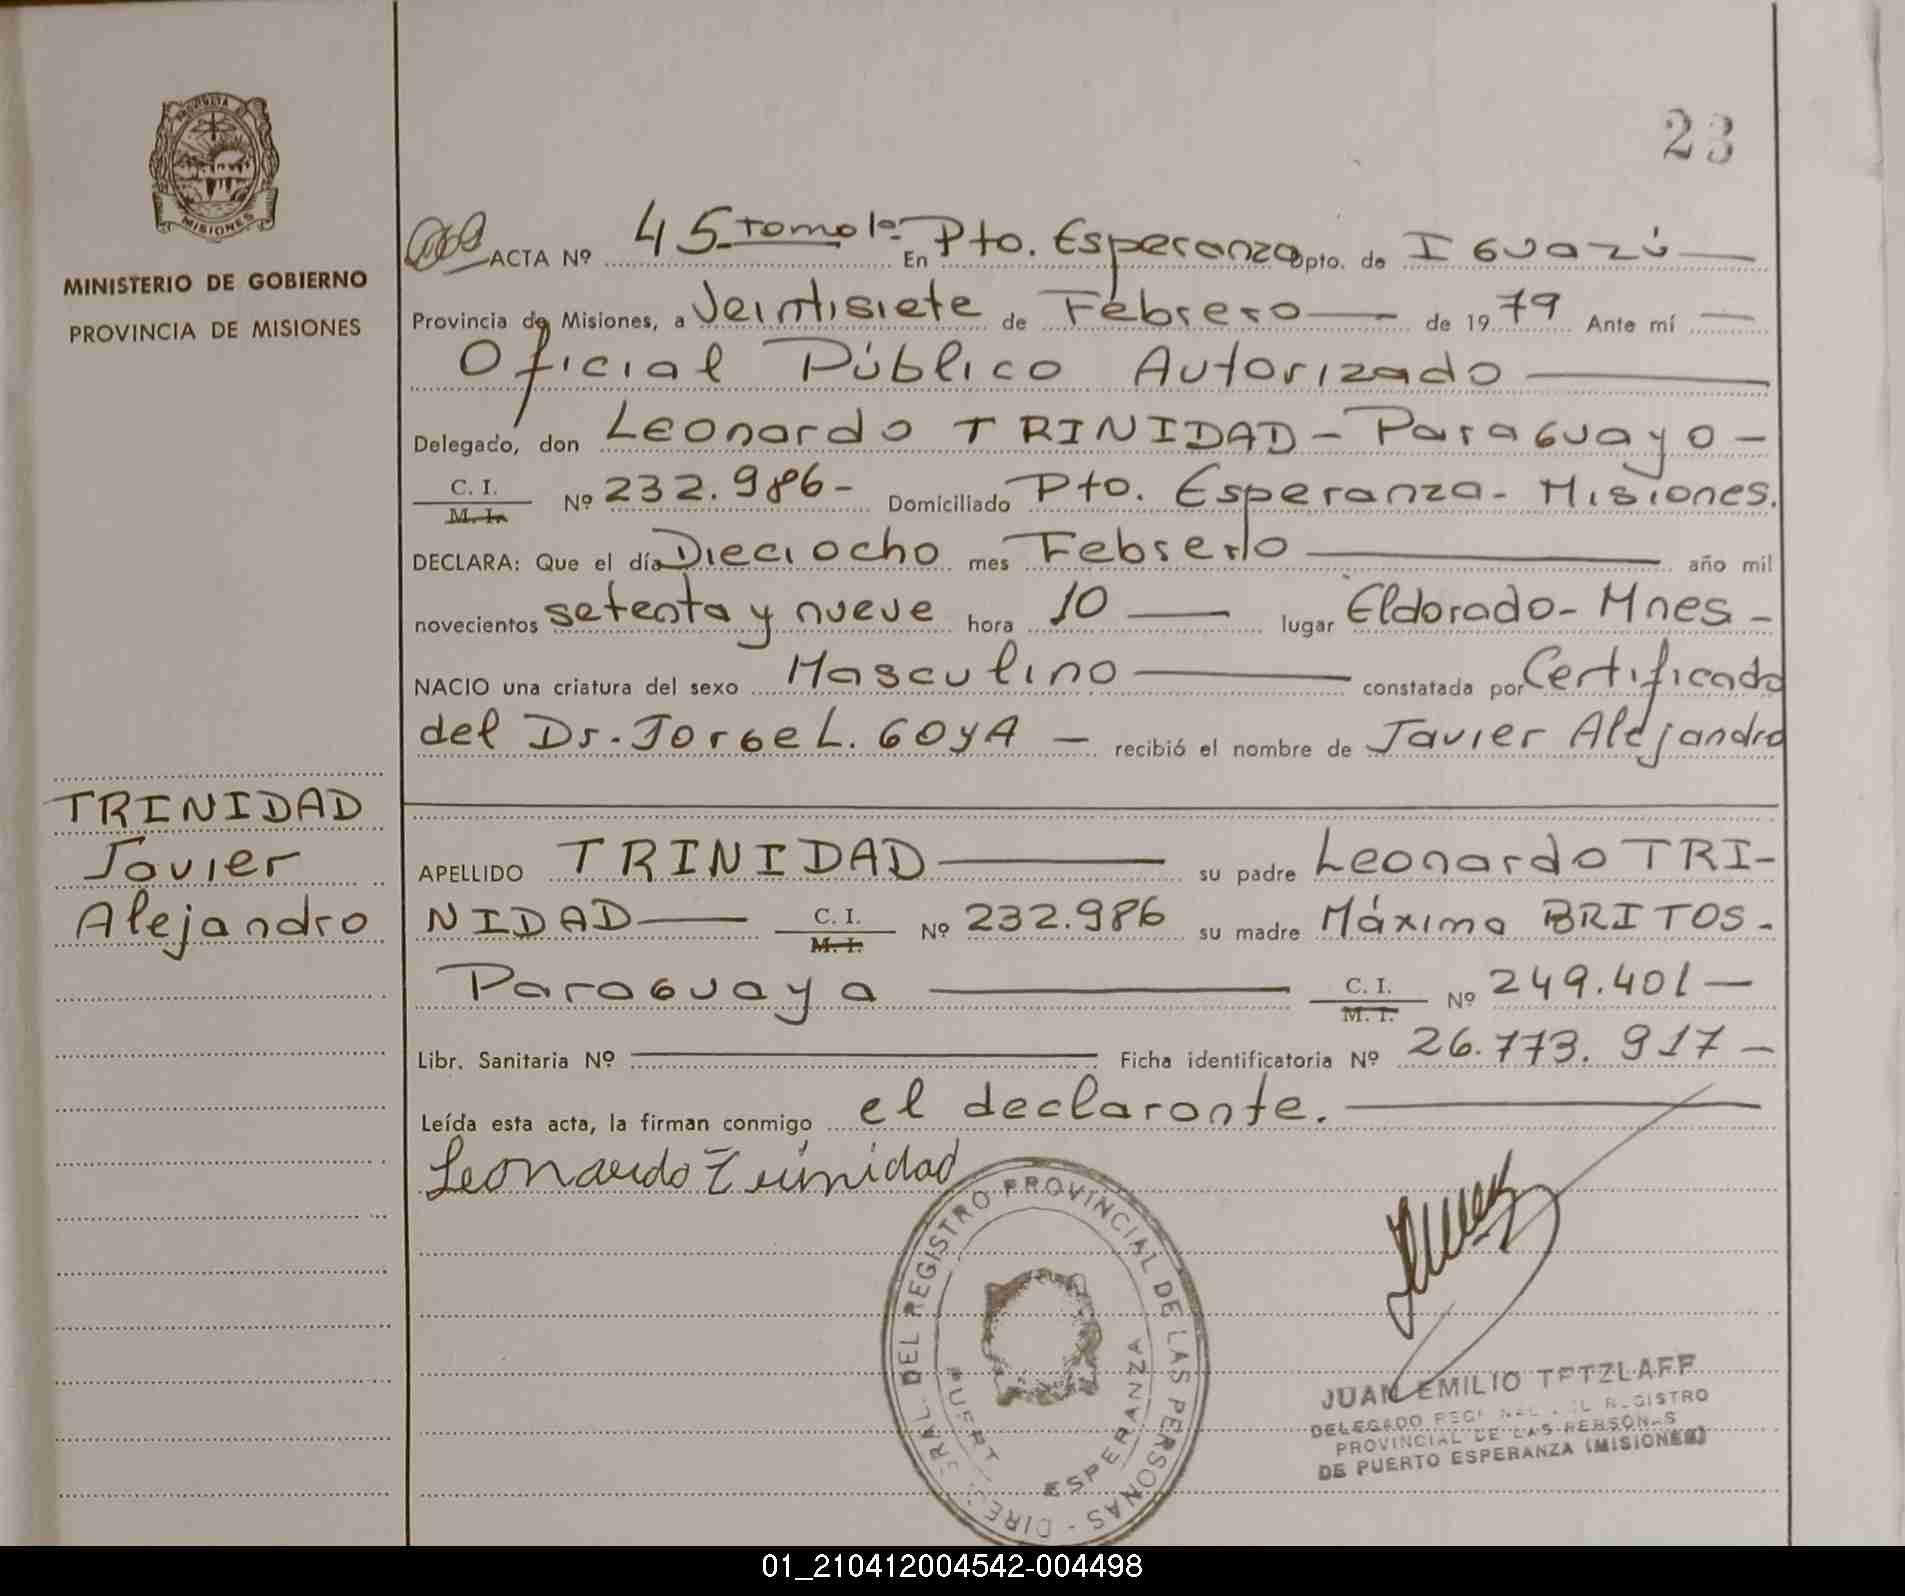 23
MISIONES
MINISTERIO DE GOBIERNO
PROVINCIA DE MISIONES
TRINIDAD
Javier
Alejandro
ACTA Nº 45 Tomo 1º- En Pto. Esperanza Dpto. de Iguazú
Provincia de Misiones, a Veintisiete de Febrero de 1979 Ante mí
Oficial Público Autorizado
Delegado, don Leonardo TRINIDAD - Paraguayo -
C. I.
M. I. Nº 232.986- Domiciliado Pto. Esperanza - Misiones.
DECLARA: Que el día Dieciocho mes Febrero año mil
novecientos setenta y nueve hora 10 lugar Eldorado - Mnes -
NACIO una criatura del sexo Masculino constatada por Certificado
del Dr. Jorge L. GOyA - recibió el nombre de Javier Alejandro
APELLIDO TRINIDAD su padre Leonardo TRI-
NIDAD C. I. Nº 232.986 su madre Máxima BRITOS -
M. I.
Paraguaya C. I. Nº 249.401 -
M. I.
Libr. Sanitaria Nº Ficha identificatoria Nº 26.773.917 -
Leída esta acta, la firman conmigo el declarante.
Leonardo Trinidad
DEL REGISTRO PROVINCIAL DE LAS PERSONAS -
ESPERANZA
JUAN EMILIO TETZLAFF
DELEGADO REGIONAL DEL REGISTRO
PROVINCIAL DE LAS PERSONAS
DE PUERTO ESPERANZA (MISIONES)
01_210412004542-004498